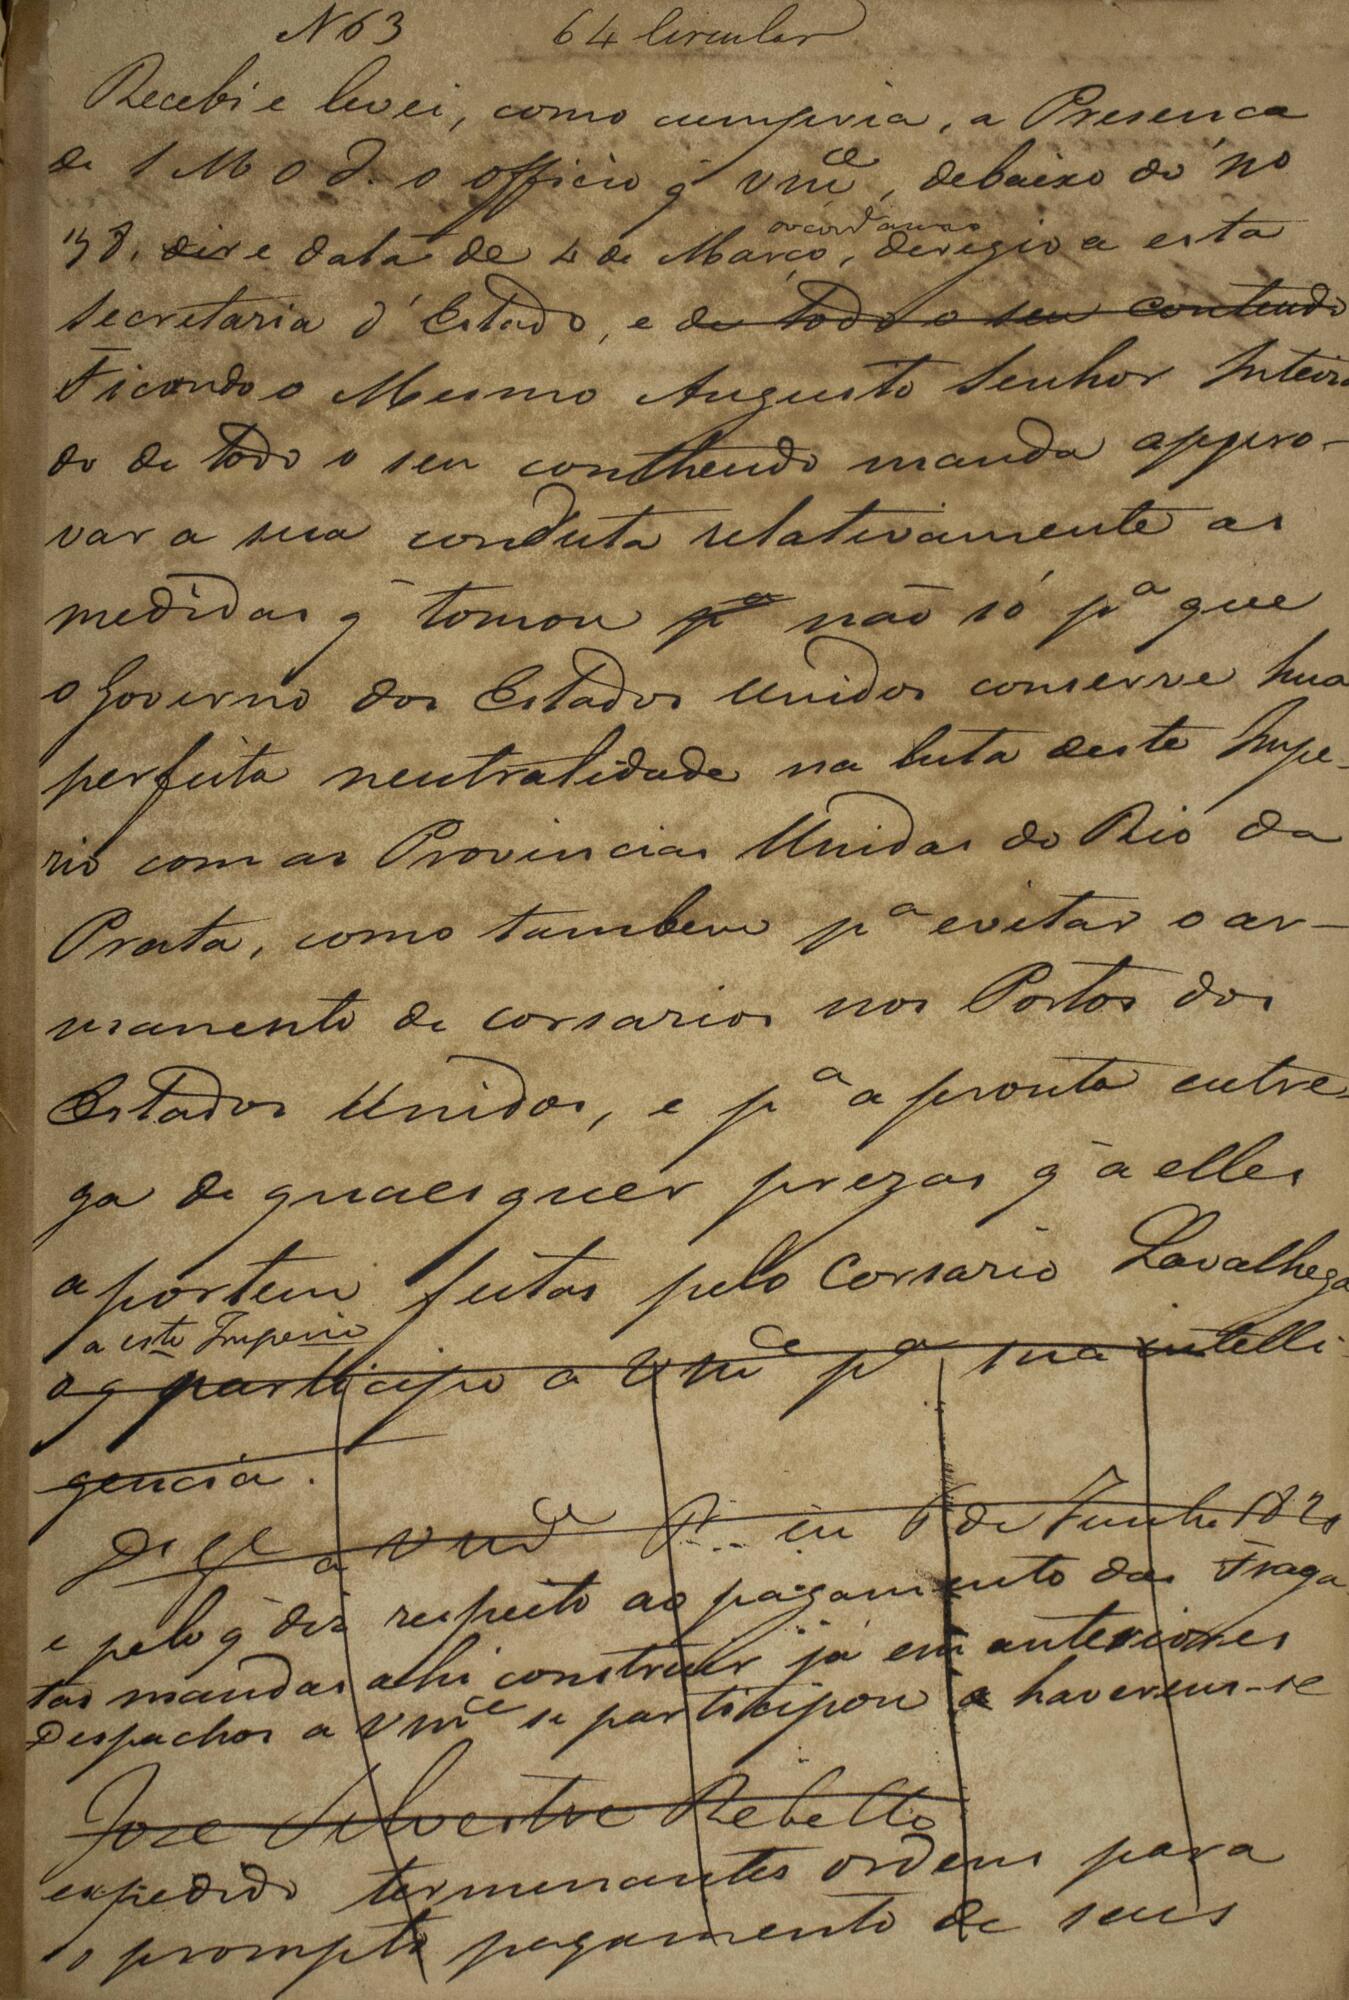 N 63 64 Circular
Recebi e levei, como cumpria, a Presença
de S M O I. o officio q̃ Vmce, debaixo do no
38. e data de 4 de Março, deregio a esta
Secretaria d'Estado, e de todo o seu contendo
Ficando o Mesmo Augusto Senhor Inteira
do de todo o seu conthendo manda appro-
var a sua conduta relativamente as
medidas q̃ tomou pa não só pa que
o Governo dos Estados Unidos conserve hua
perfeita neutralidade na luta deste Impe-
rio com as Provincias Unidas do Rio da
Prata, como tambem pa evitar o ar-
mamento de corsarios nos Portos dos
Estados Unidos, e pa a pronta entre-
ga de quaesquer prezas q̃ a elles
aportem feitas pelo Corsario Lavalhega
a este Imperio
o q participo a Vmce pa sua intelli
gencia.
Ds Ge a Vmce P... em 6 de Junho
e pelo q̃ diz respeito ao pagamento das Fraga
tas mandas alhi construir já em anteriores
Despachos a Vmce se participou a haverem-se
Joze Silvestre Rebello
expedido termenantes ordens para
o prompto pagamento de seus